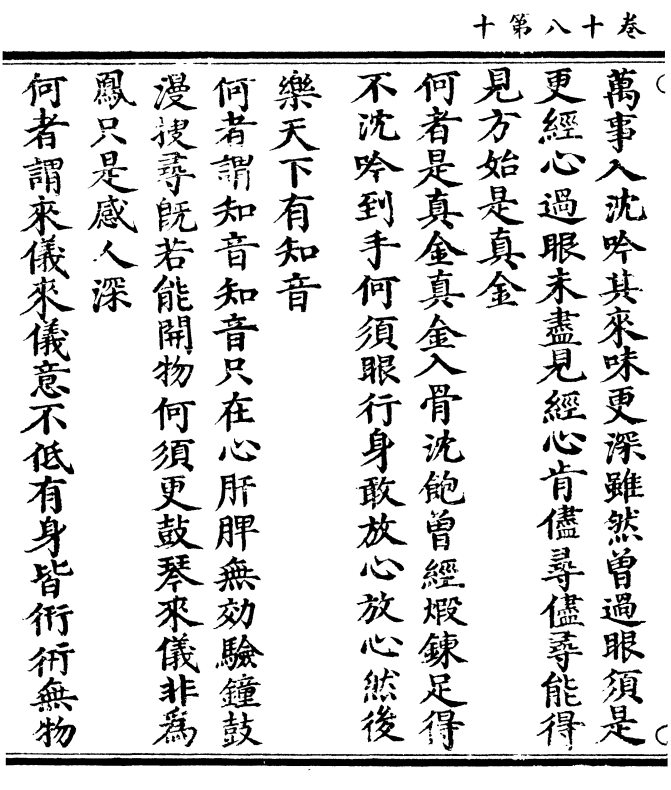 卷十八第十
萬事入沈吟其來味更深雖然曾過眼須是
更經心過眼未盡見經心肯儘尋儘尋能得
見方始是真金
何者是真金真金入骨沈飽曾經煅鍊足得
不沈吟到手何須眼行身敢放心放心然後
樂天下有知音
何者謂知音知音只在心肝脾無効驗鐘鼓
漫搜尋旣若能開物何須更鼓琴來儀非爲
鳳只是感人深
何者謂來儀來儀意不低有身皆衎衎無物